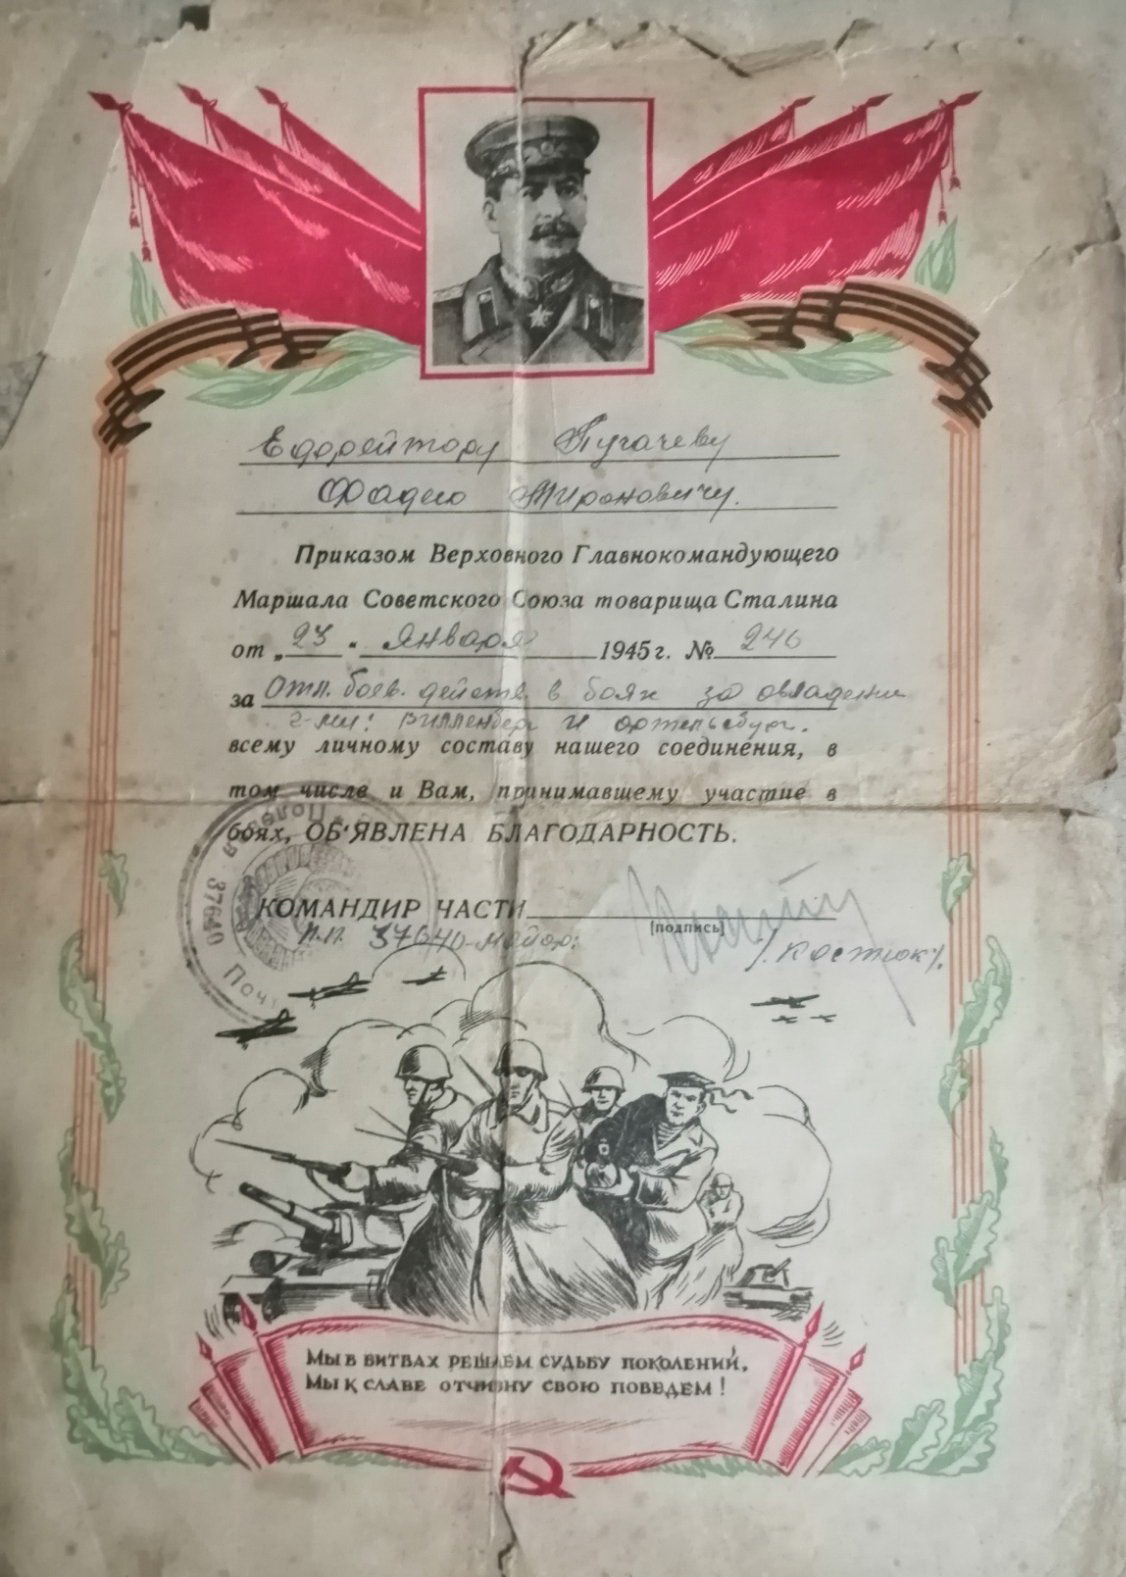 Ефрейтору Пугачеву
Фадею Мироновичу.
Приказом Верховного Главнокомандующего
Маршала Советского Союза товарища Сталина
от „23" Января 1945 г. № 246
за Отл. боев. действ. в боях за овладении
г-ми: Вилленберг и Ортельсбург.
всему личному составу нашего соединения, в
том числе и Вам, принимавшему участие в
боях, ОБ'ЯВЛЕНА БЛАГОДАРНОСТЬ.
КОМАНДИР ЧАСТИ
(подпись)
П.П. 37640-майор: /. Костюк/.
Полевая
37640
Почт
Мы в битвах решаем судьбу поколений,
Мы к славе отчизну свою поведем!